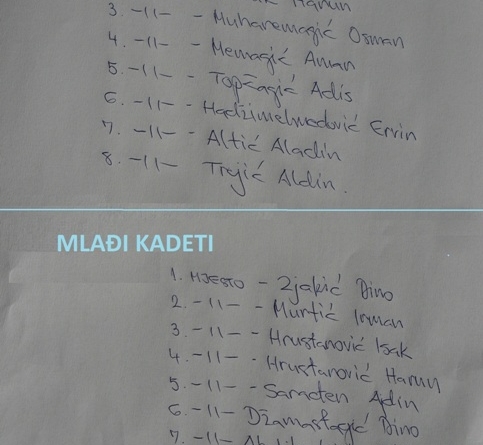 Harun
3. -11- - Muharemagić Osman
4. -11- - Memagić Aman
5. -11- - Topčagić Adis
6. -11- - Hadžimehmedović Ervin
7. -11- - Altić Aladin
8. -11- Trejić Aldin.
MLAĐI KADETI
1. MJESTO - Zjakić Dino
2. -11- - Murtić Irman
3. -11- - Hrustanović Isak
4. -11- - Hrustanović Harun
5. -11- - Samcten Ajdin
6. -11- Džamastagić Dino
7. -11-